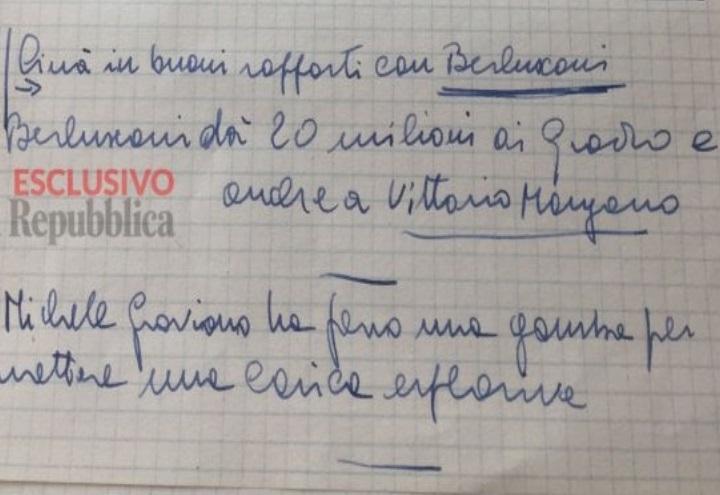 Cinà in buoni rapporti con Berlusconi
Berlusconi dà 20 milioni ai Grado e
ESCLUSIVO
Repubblica
anche a Vittorio Mangano
Michele Graviano ha perso una gamba per
mettere una carica esplosiva